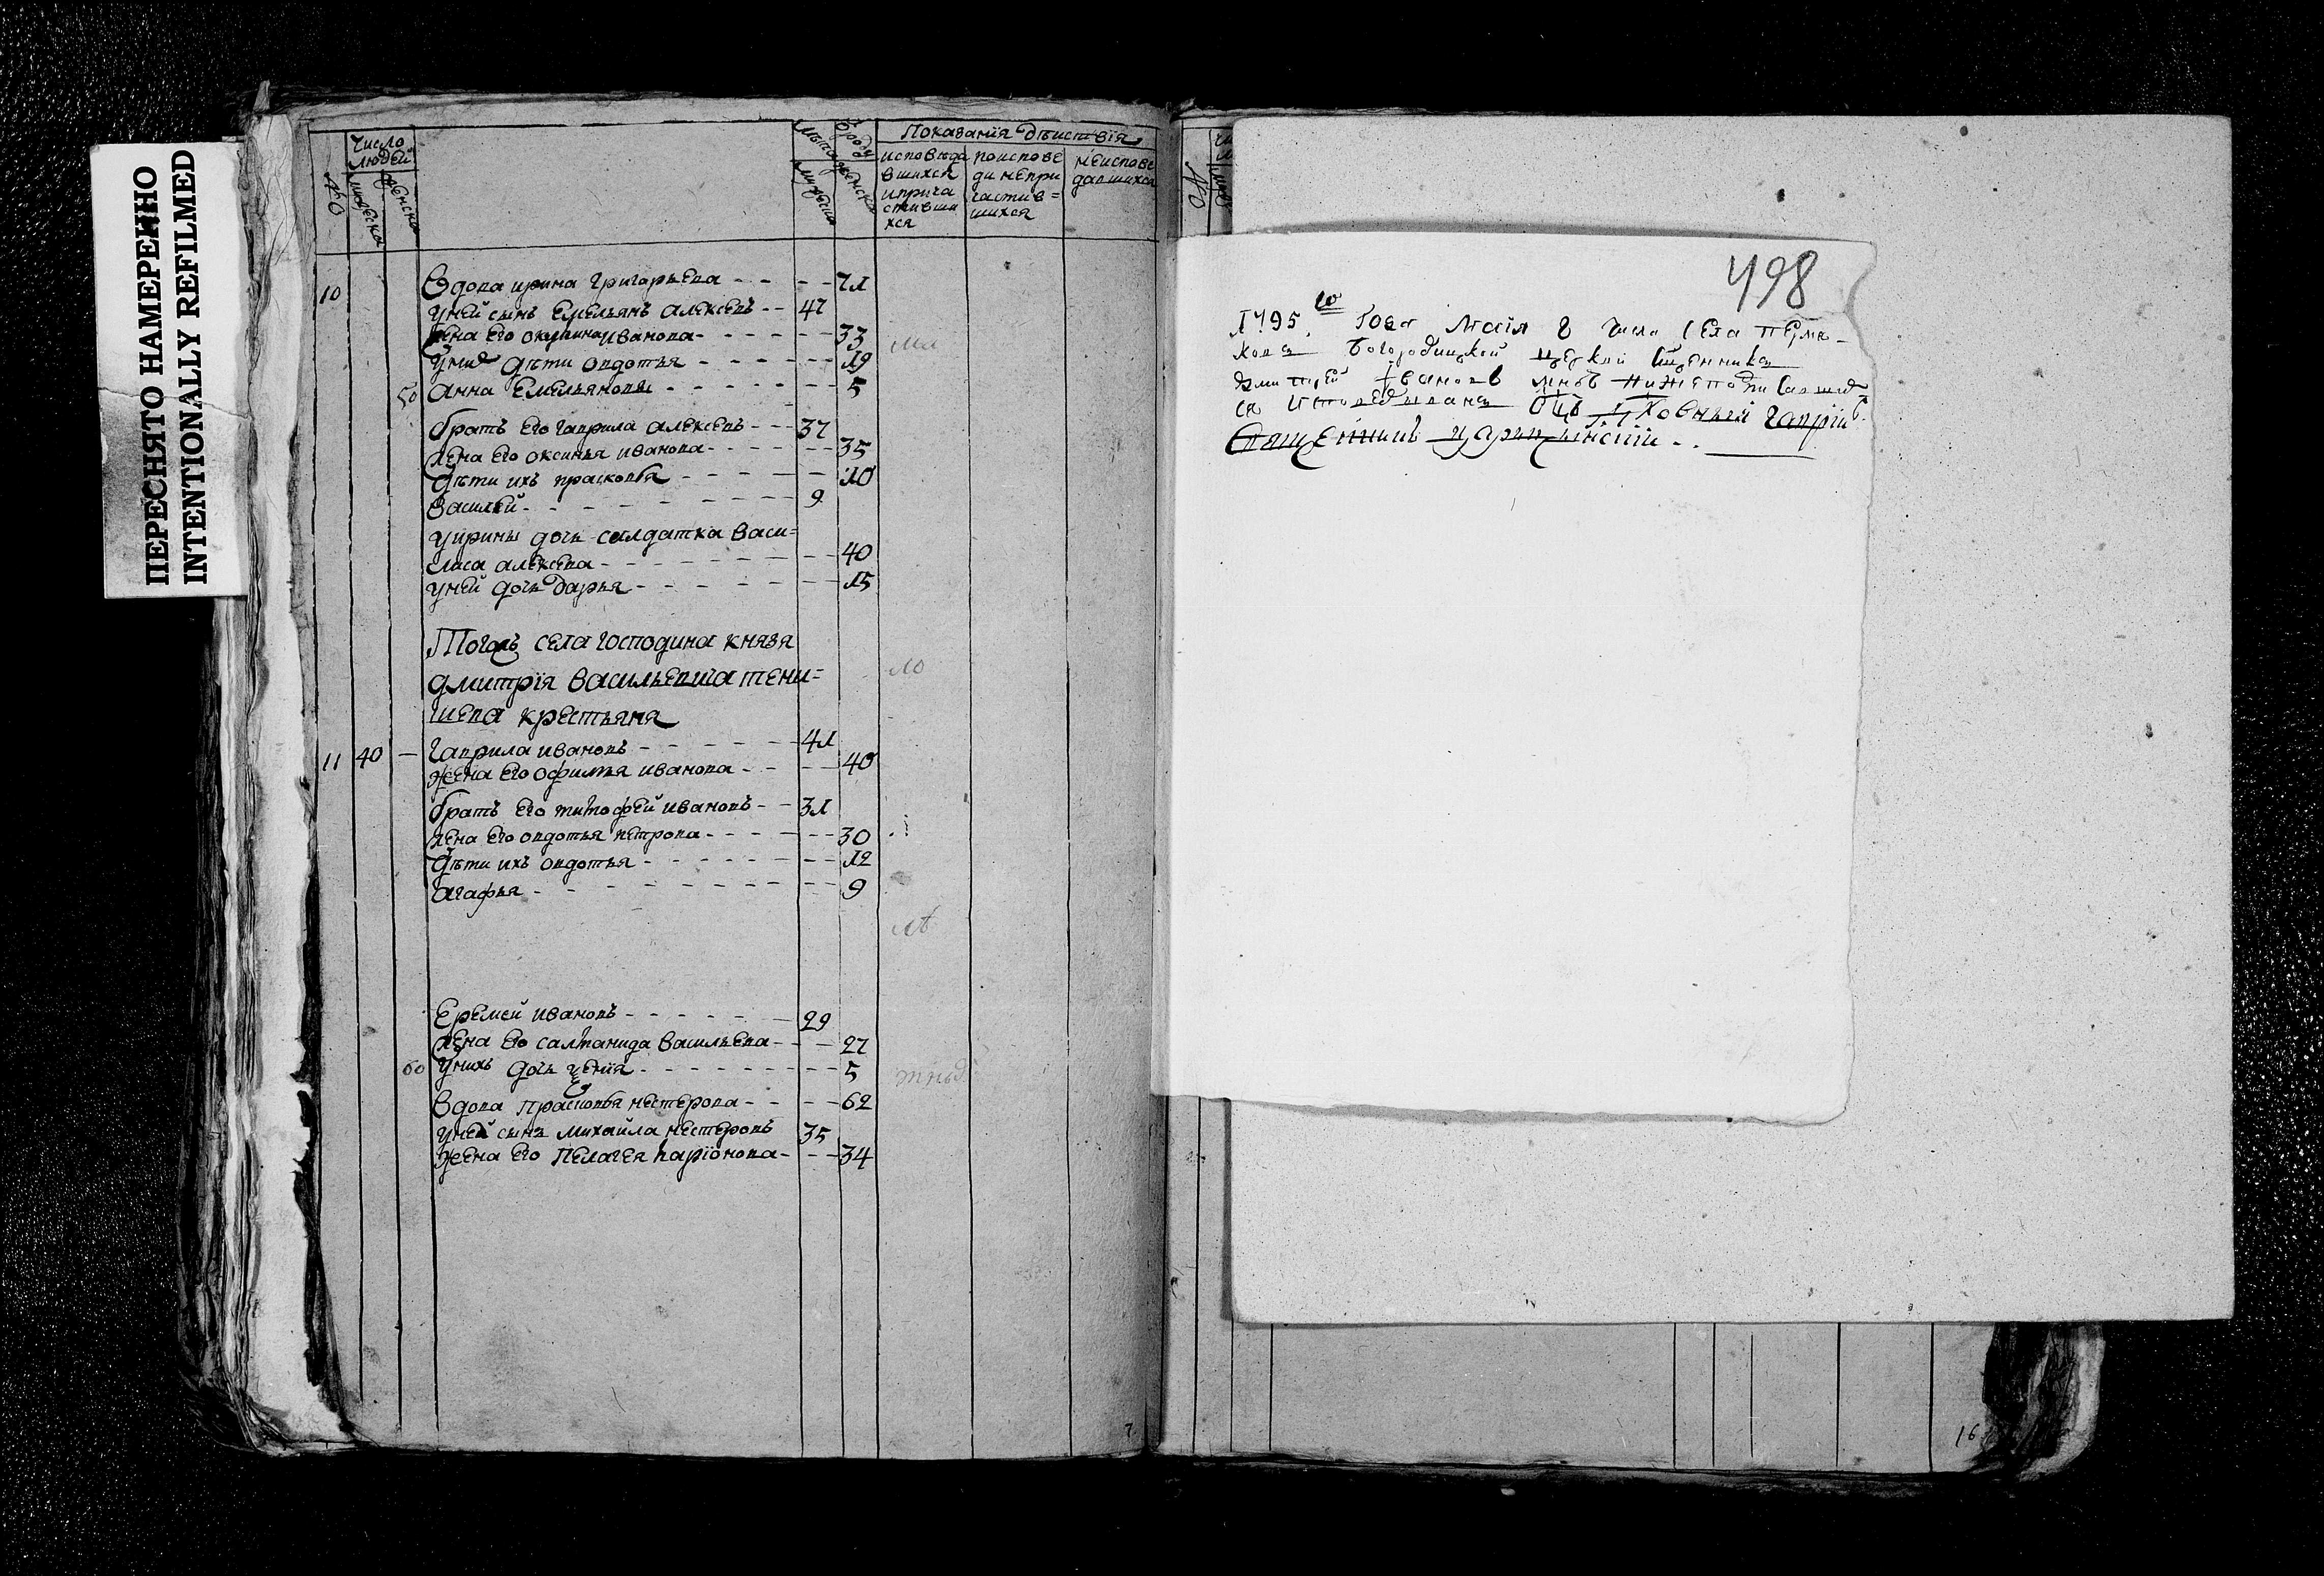 ПЕРЕСНЯТО НАМЕРЕННО
INTENTIONALLY REFILMED
№
Число
людей
мужеска
женска
Лѣта
ѿроду
мужеска
женска
Показанїя дѣиствїя
исповѣда
вшихся
и прича
стивши
хся
поиспове
ди непри
частив=
шихся
неиспове
давшихся
10
Вдова ирина григорьева - - - - 71
уней сынъ Емельянъ алексевъ - - 47
жена его окулина иванова - - - - 33
унихъ дѣти овдотья - - - - 19
50 анна Емельянова - - - - 5
братъ его гаврила алексевъ - - - 37
жена его оксинья иванова - - - - 35
дѣти ихъ прасковья - - - - 10
василей - - - - 9
уирины дочь салдатка васи=
лиса алексева - - - - 40
уней дочь дарья - - - - 15
Тогожъ села господина князя
дмитрїя васильевича тени=
шева крестьяня
11 40 — гаврила ивановъ - - - - 41
жена его офимья иванова - - - - 40
братъ его тимофей ивановъ - - 31
жена его овдотья петрова - - - - 30
дѣти ихъ овдотья - - - - 12
агафья - - - - 9
Еремей ивановъ - - - - 29
жена его саламанида васильева - - - 27
60 унихъ дочь - - - - 5
вдова прасковья нестерова - - - - 62
уней сынъ михайла нестеровъ 35
жена его пелагея ларїонова - - - 34
7
498
1795 го года маїя 8 числа села
Богородицкой церкви
дмитрей ивановъ
духовный гаврїи
Священникъ
№
16